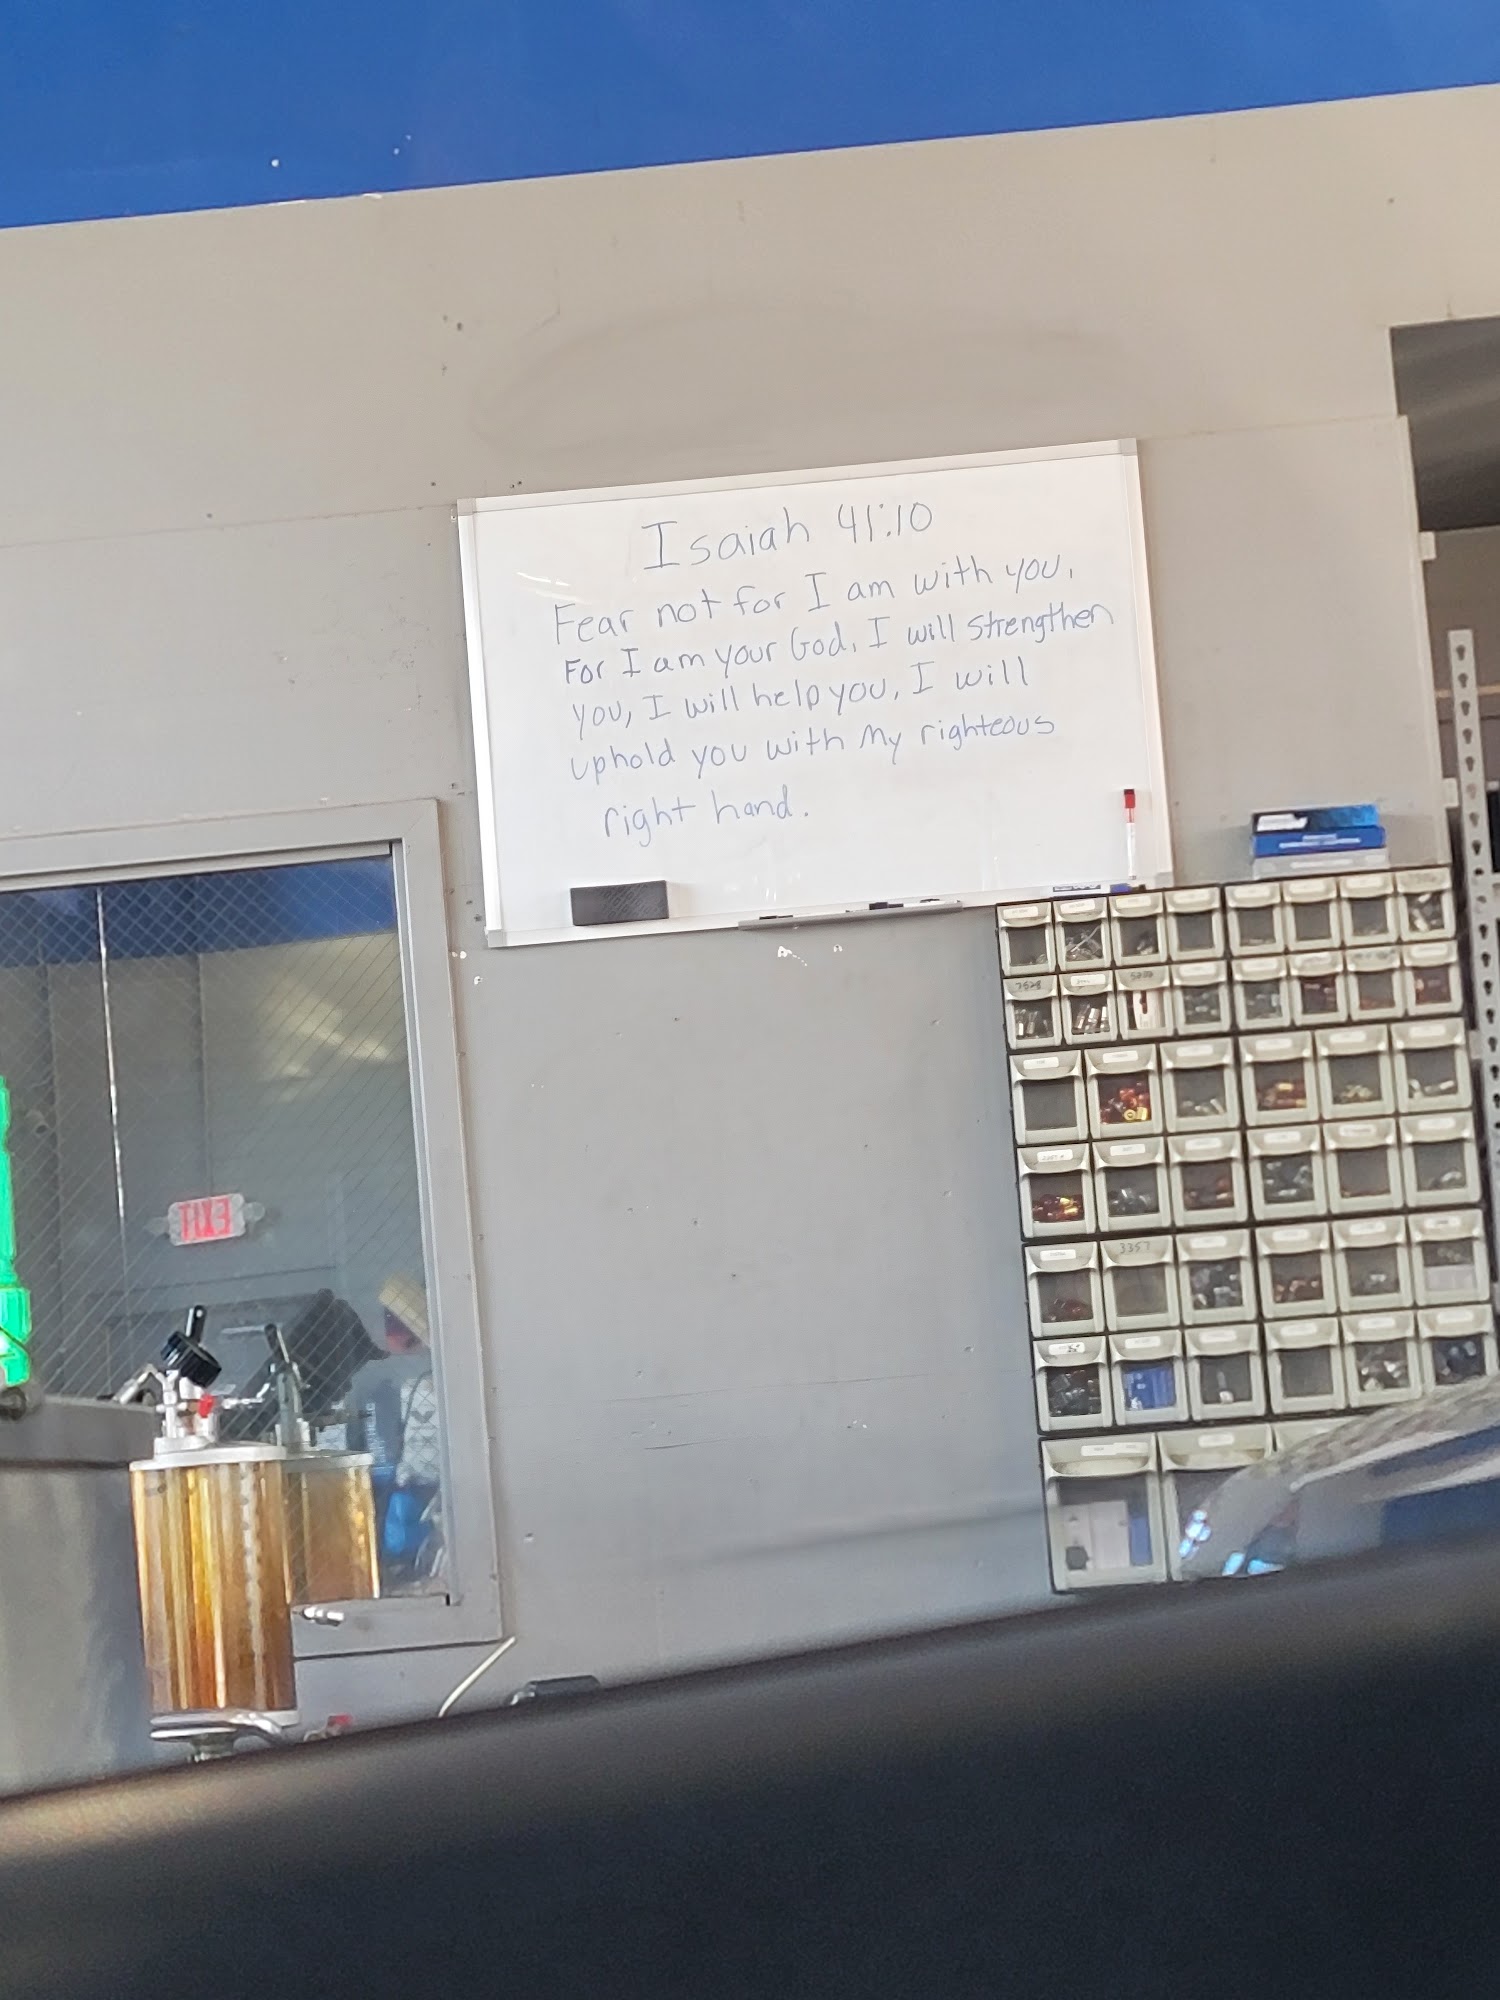 Isaiah 41:10
Fear not for I am with you,
For I am your God, I will strengthen
you, I will help you, I will
uphold you with My righteous
right hand.
EXIT
7528
3357